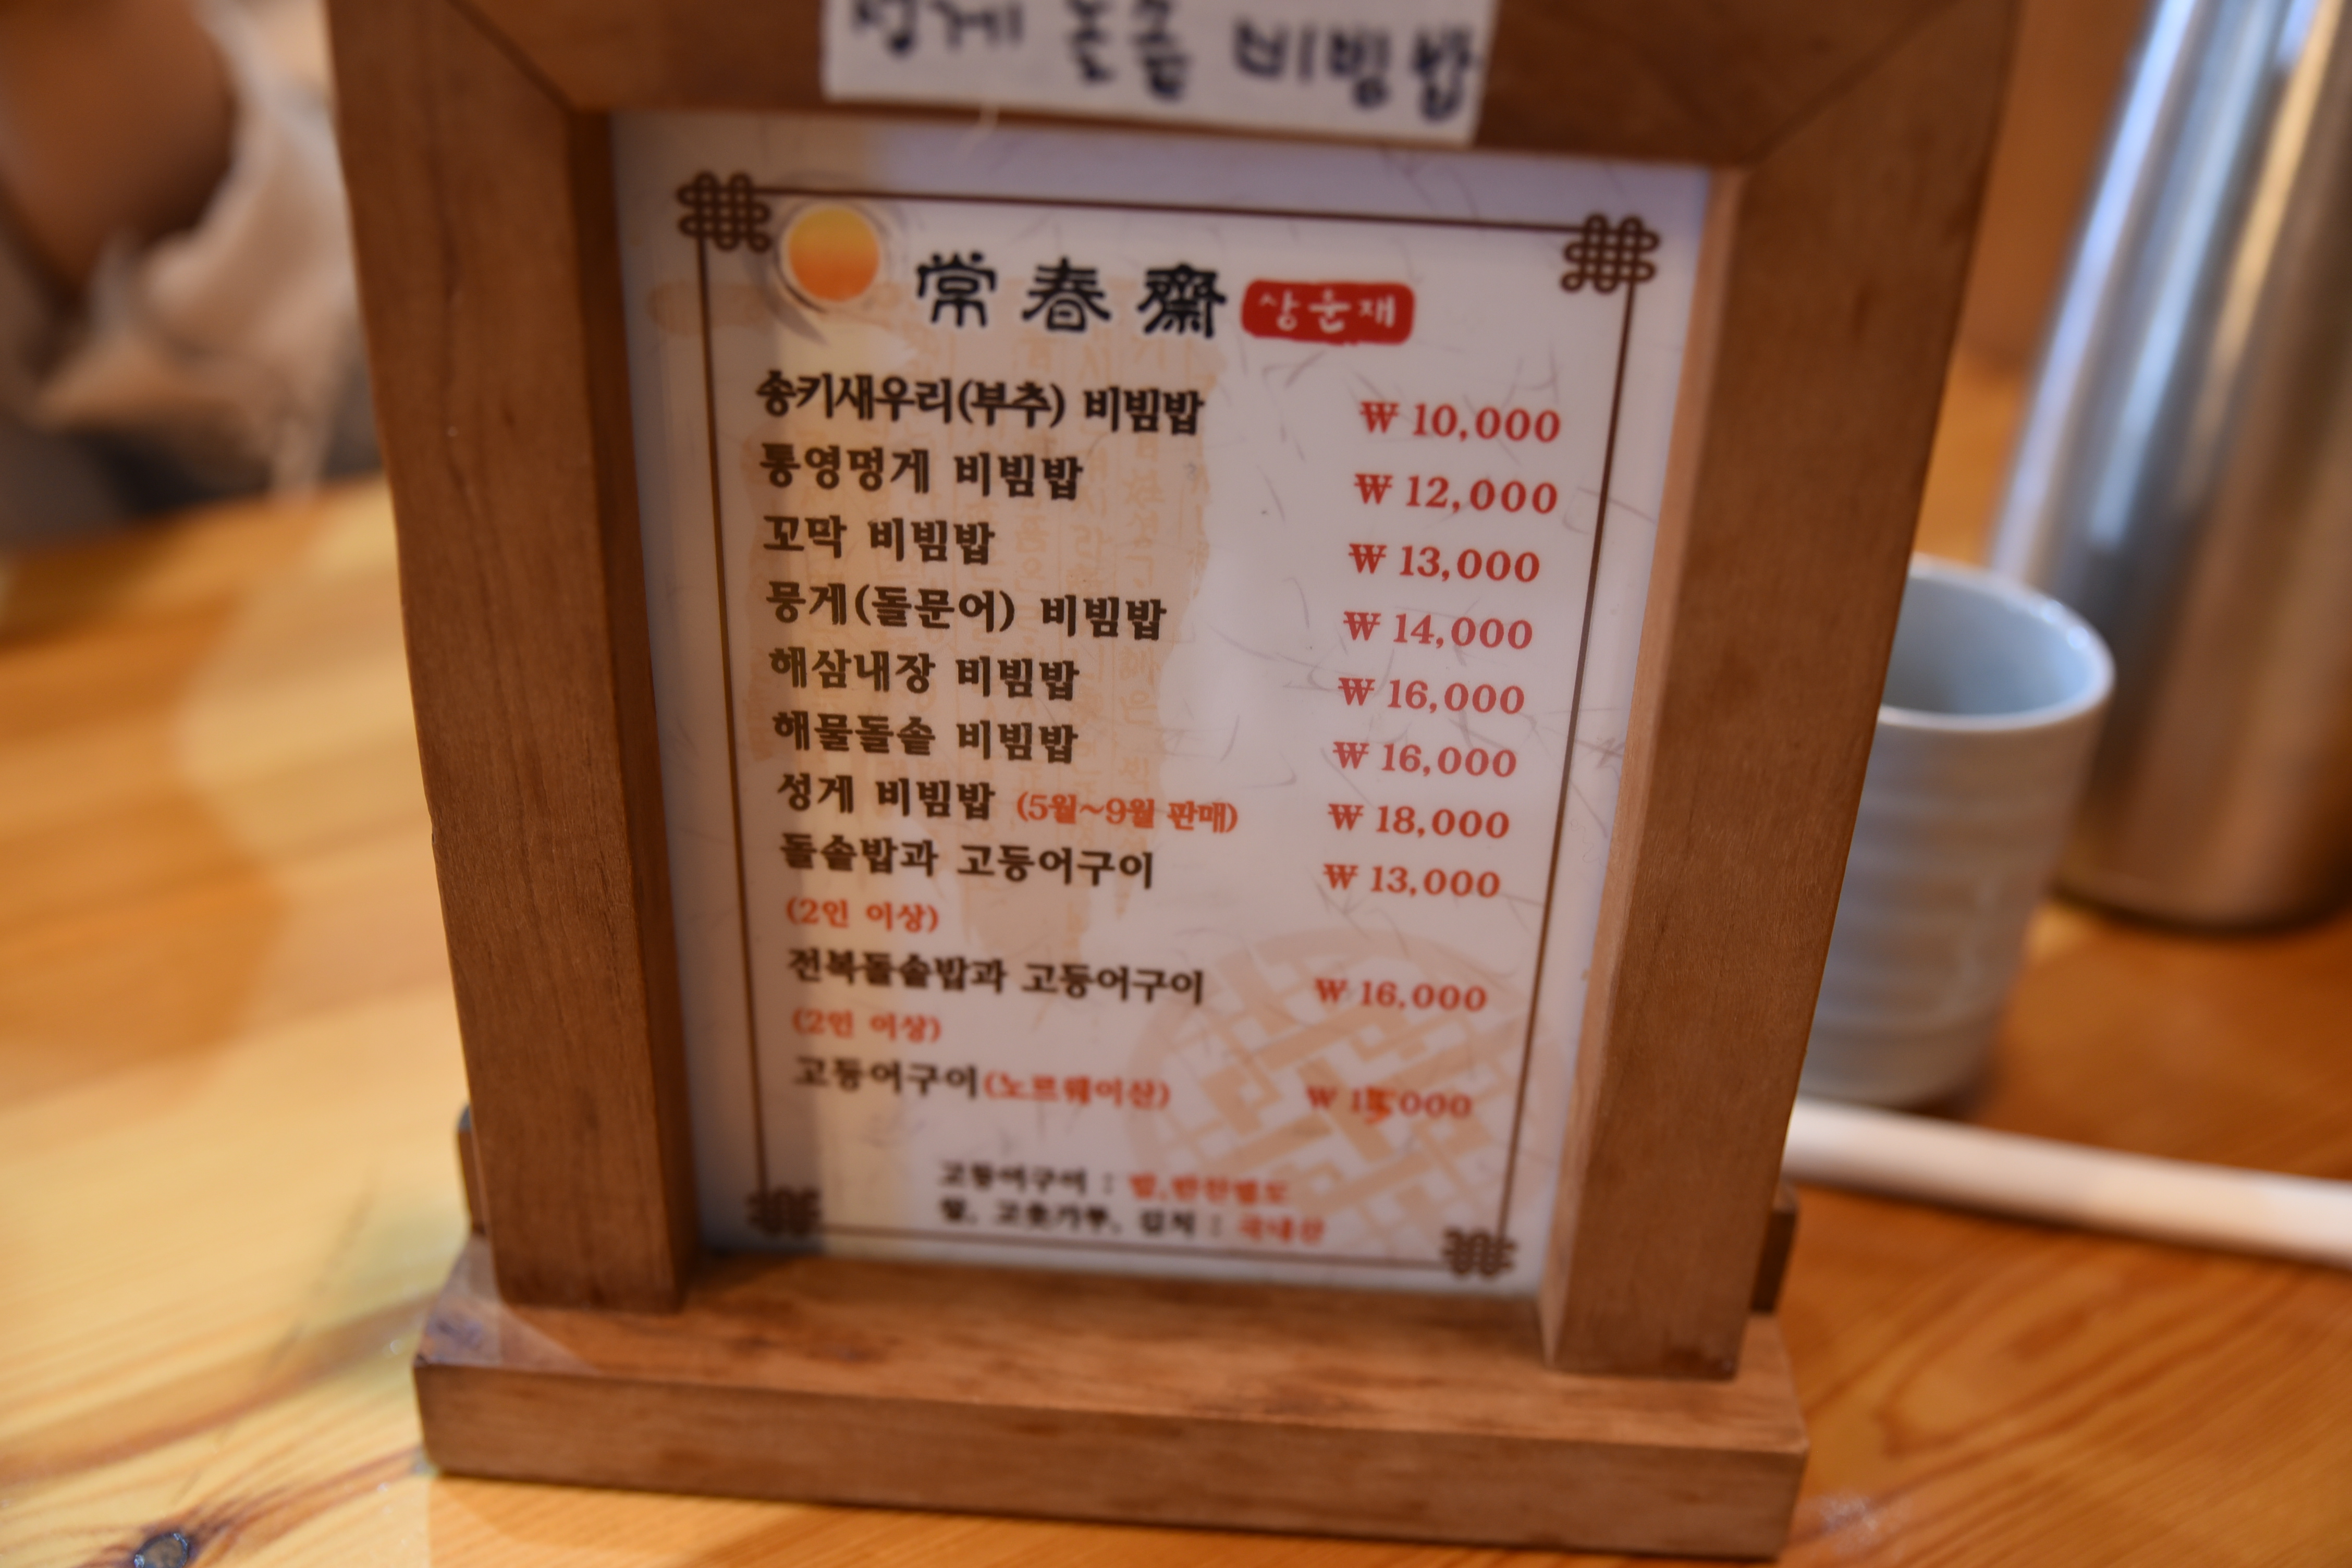 성게 돌솥 비빔밥
常春齋 상춘재
송키새우리(부추) 비빔밥 ₩ 10,000
통영멍게 비빔밥 ₩ 12,000
꼬막 비빔밥 ₩ 13,000
뭉게(돌문어) 비빔밥 ₩ 14,000
해삼내장 비빔밥 ₩ 16,000
해물돌솥 비빔밥 ₩ 16,000
성게 비빔밥 (5월~9월 판매) ₩ 18,000
돌솥밥과 고등어구이 ₩ 13,000
(2인 이상)
전복돌솥밥과 고등어구이 ₩ 16,000
(2인 이상)
고등어구이(노르웨이산)
고등어구이 : 밥,반찬별도
쌀, 고춧가루, 김치 : 국내산